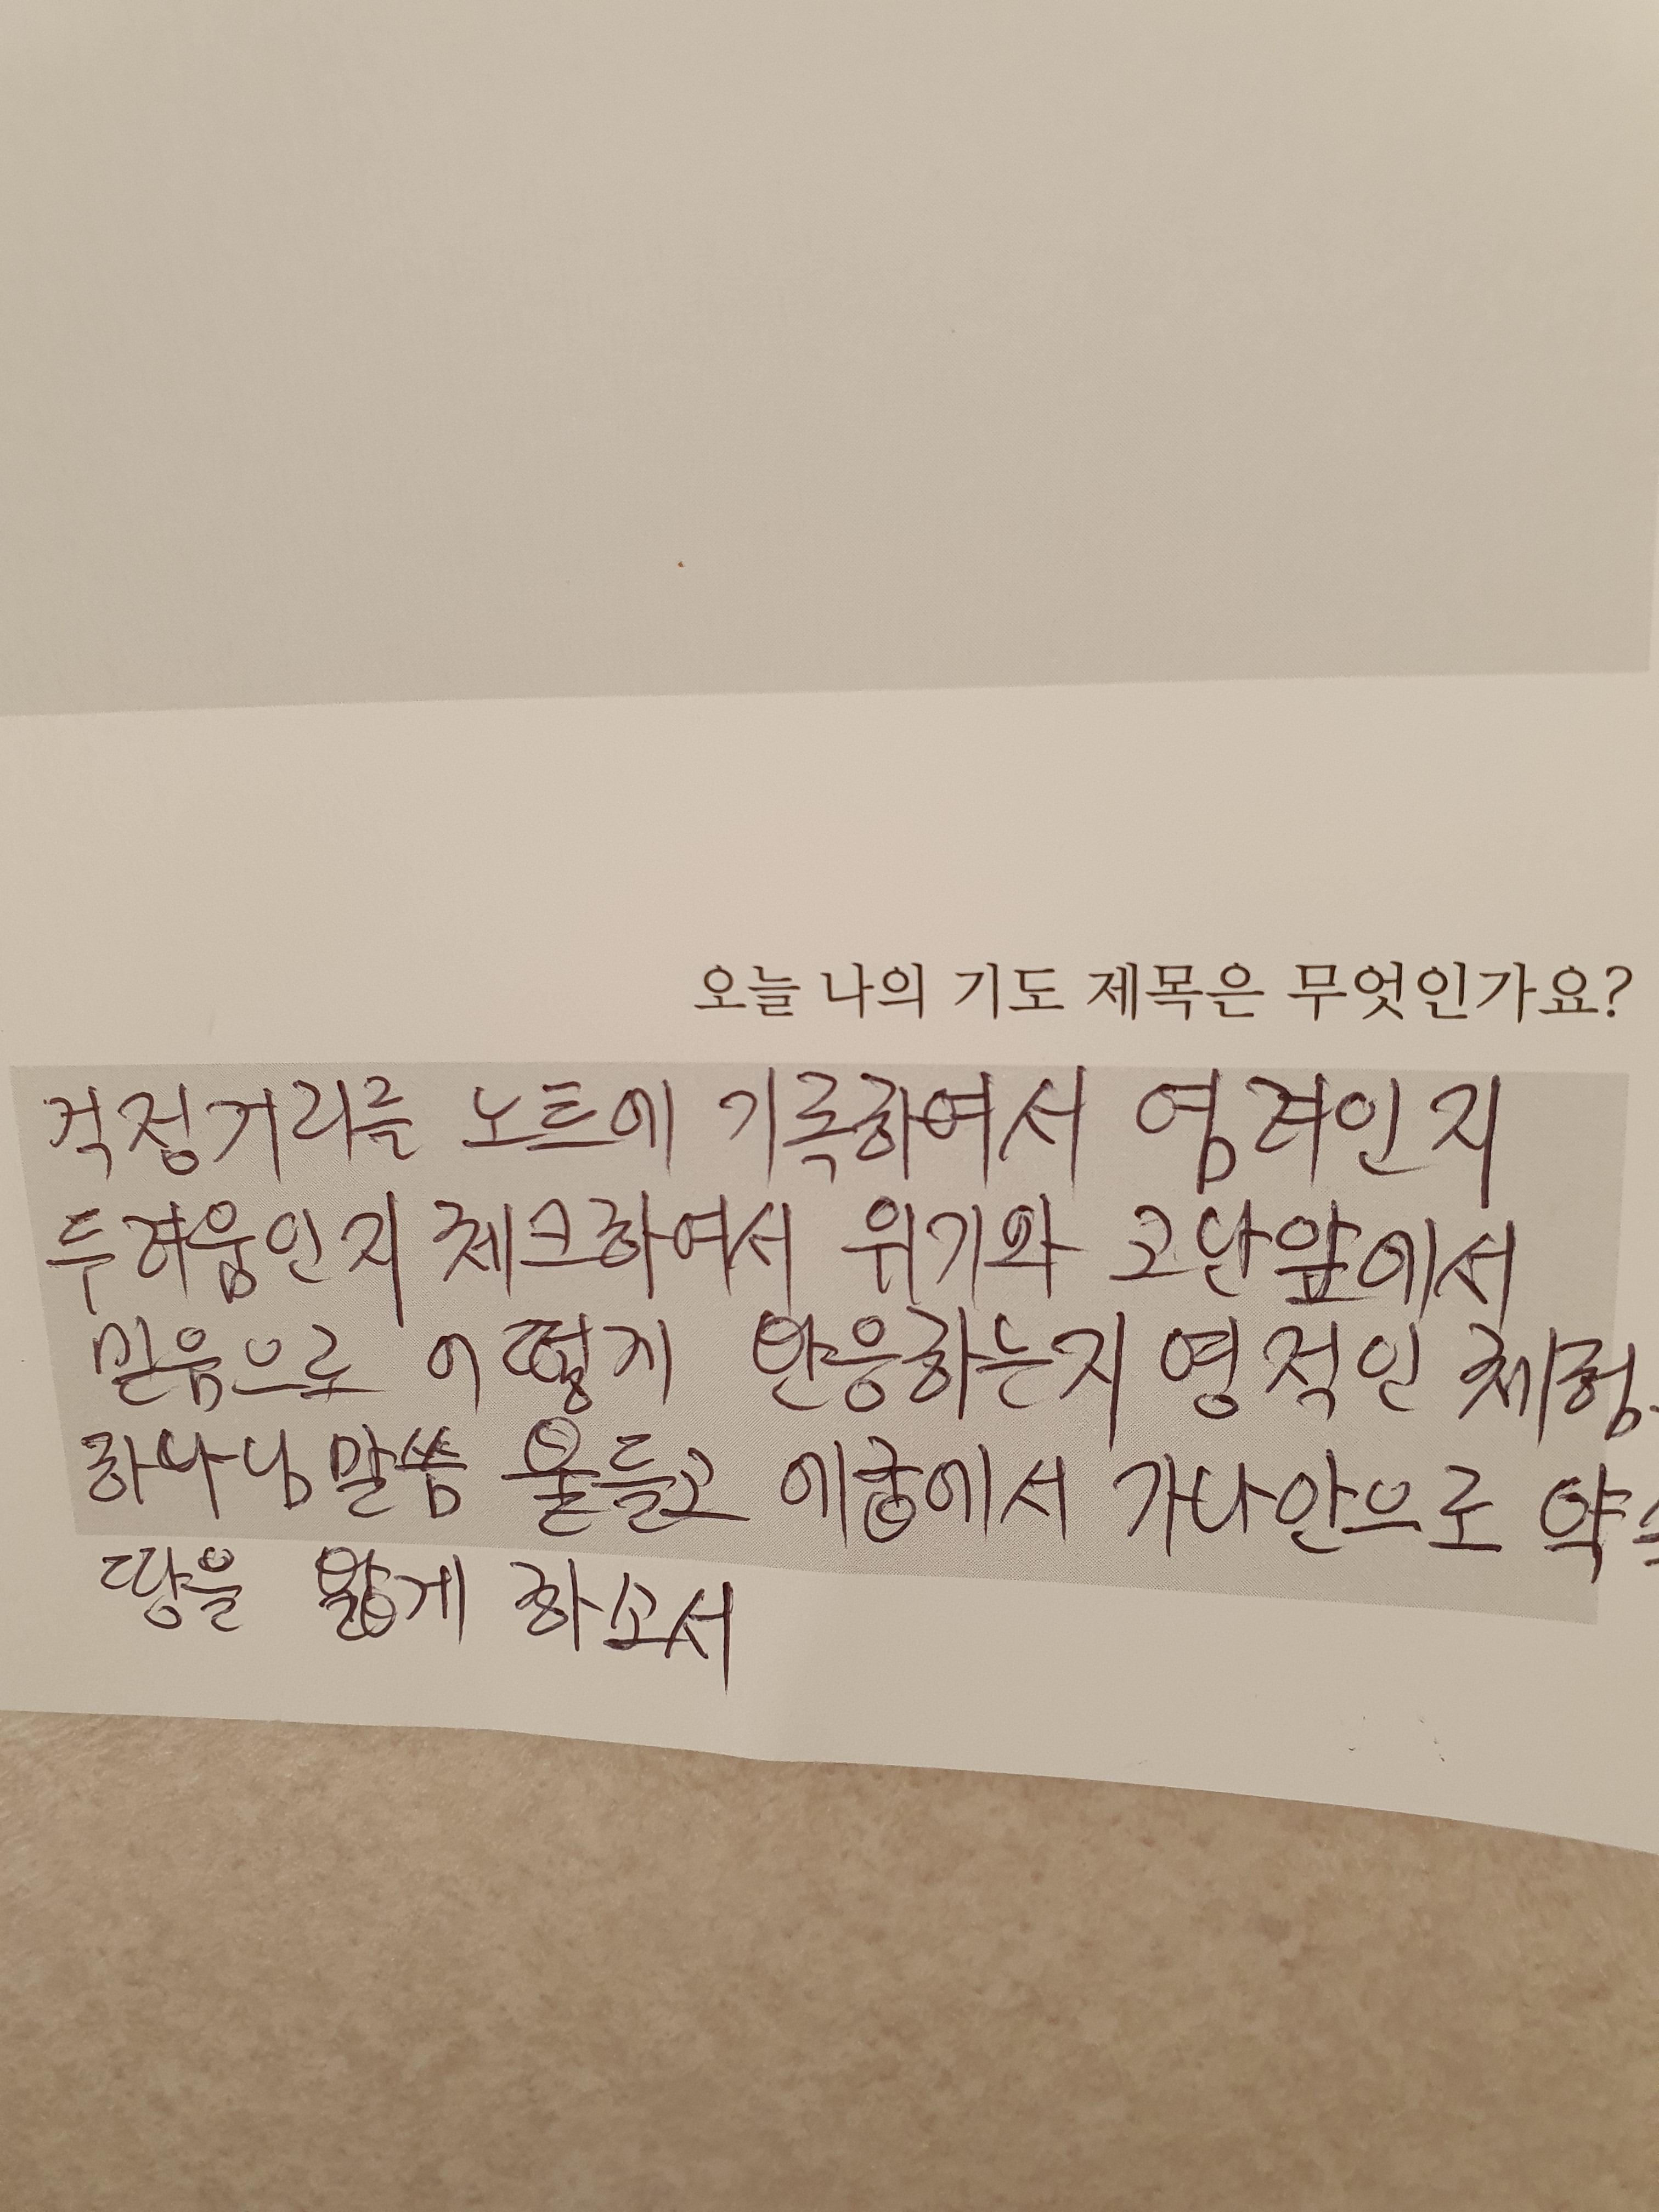 오늘 나의 기도 제목은 무엇인가요?
걱정거리를 노트에 기록하여서 염려인지
두려움인지 체크하여서 위기와 고난앞에서
믿음으로 어떻게 반응하는지 영적인 체험
하나님말씀 붙들고 애굽에서 가나안으로 약속
땅을 밟게 하소서